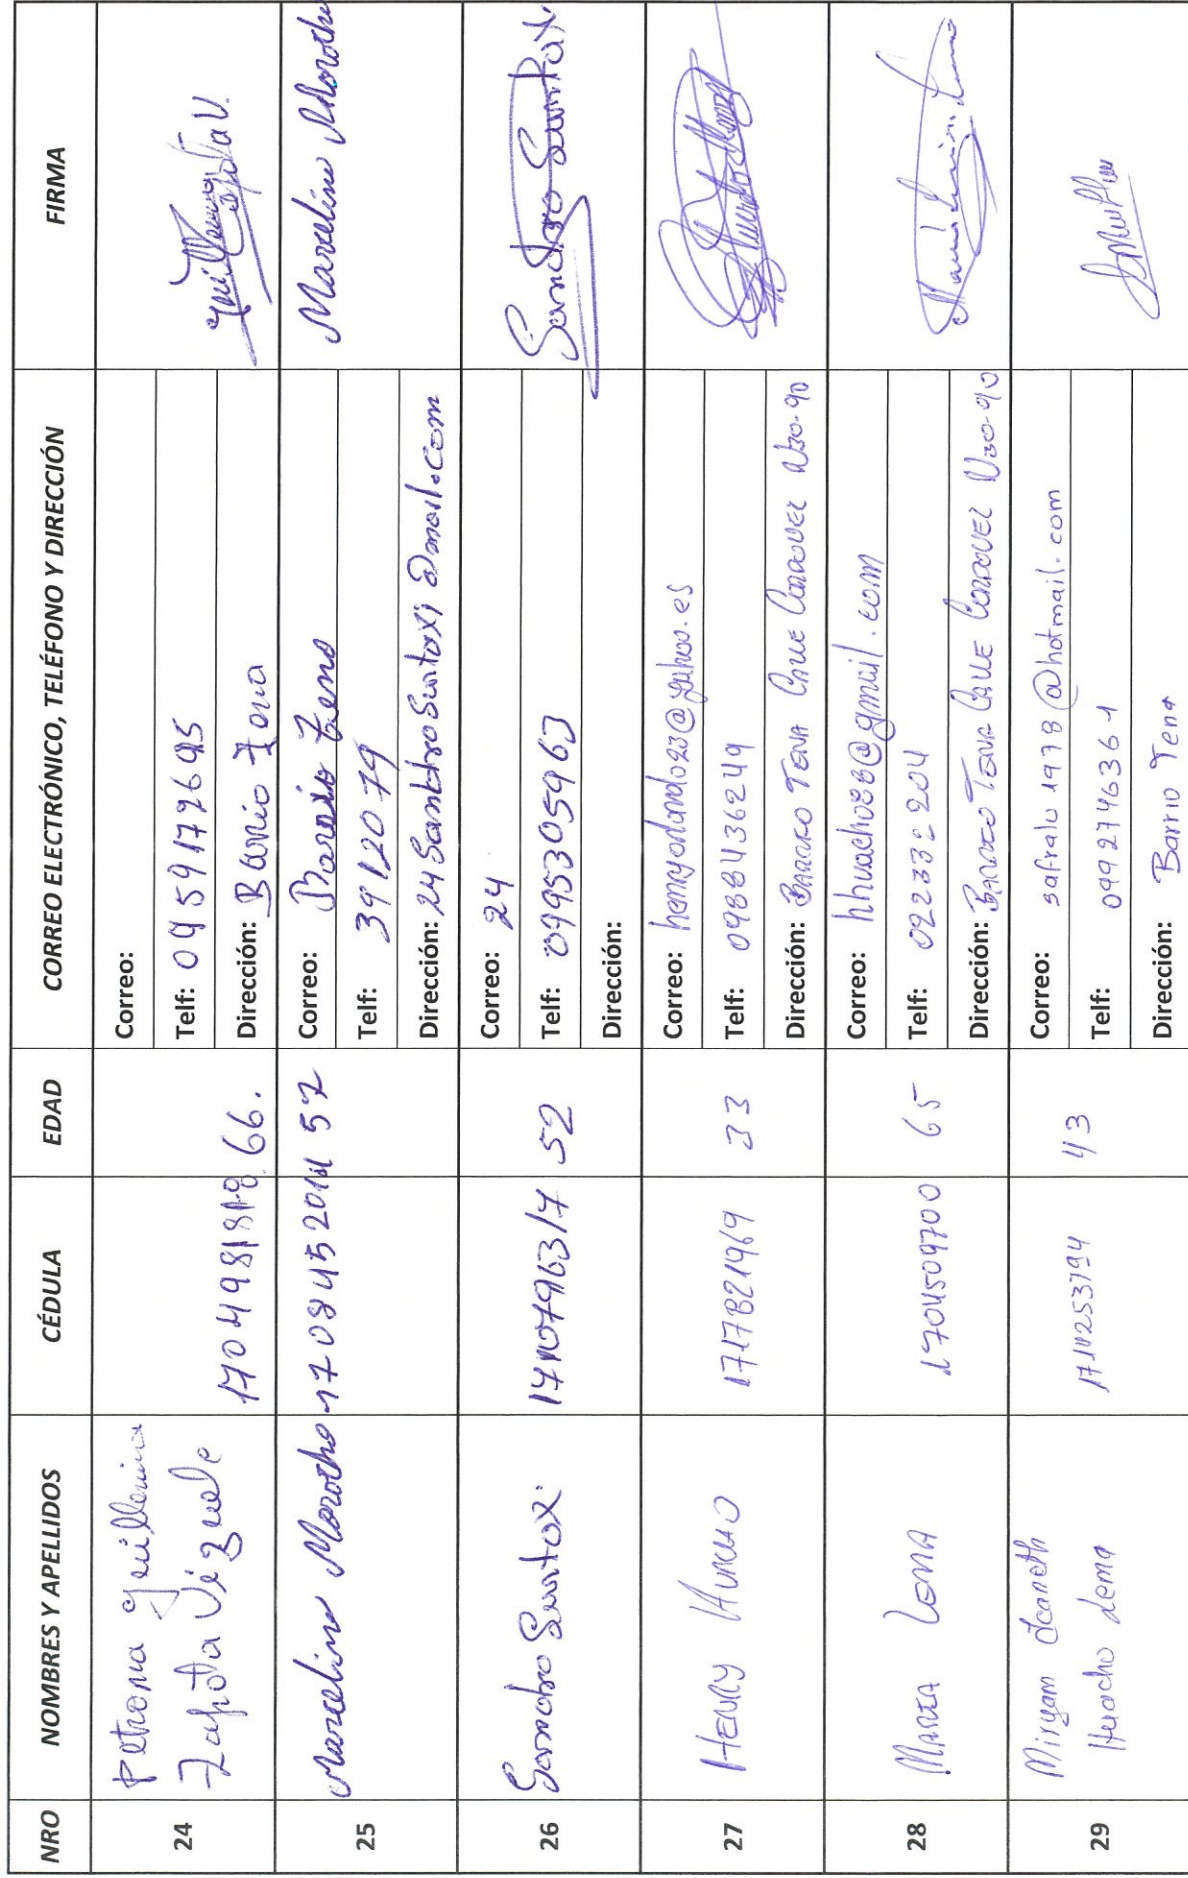 NRO NOMBRES Y APELLIDOS CÉDULA EDAD CORREO ELECTRÓNICO, TELÉFONO Y DIRECCIÓN FIRMA
24
Petrona Guillermina
Zapata
1704981818
66.
Correo:
Telf: 0959172695
Dirección: Barrio Tena
25
Marcelino Morocho
57
Correo: Barrio Tena
Telf: 3912079
Dirección:
Marcelino Morocho
26
Sandro Suntaxi
1710796317
52
Correo: 24
Telf: 0995305963
Dirección:
Sandro Suntaxi
27
HENRY HUACHO
1717821969
33
Correo:
Telf: 0988436249
Dirección: BARRIO TENA CALLE N30-90
28
MARIA LEMA
1704509700
65
Correo: hhuacho88@gmail.com
Telf: 022332204
Dirección: BARRIO TENA CALLE N30-90
29
Miryam Jeaneth
Huacho Lema
1714253794
43
Correo: safralu1978@hotmail.com
Telf: 0992746361
Dirección: Barrio Tena